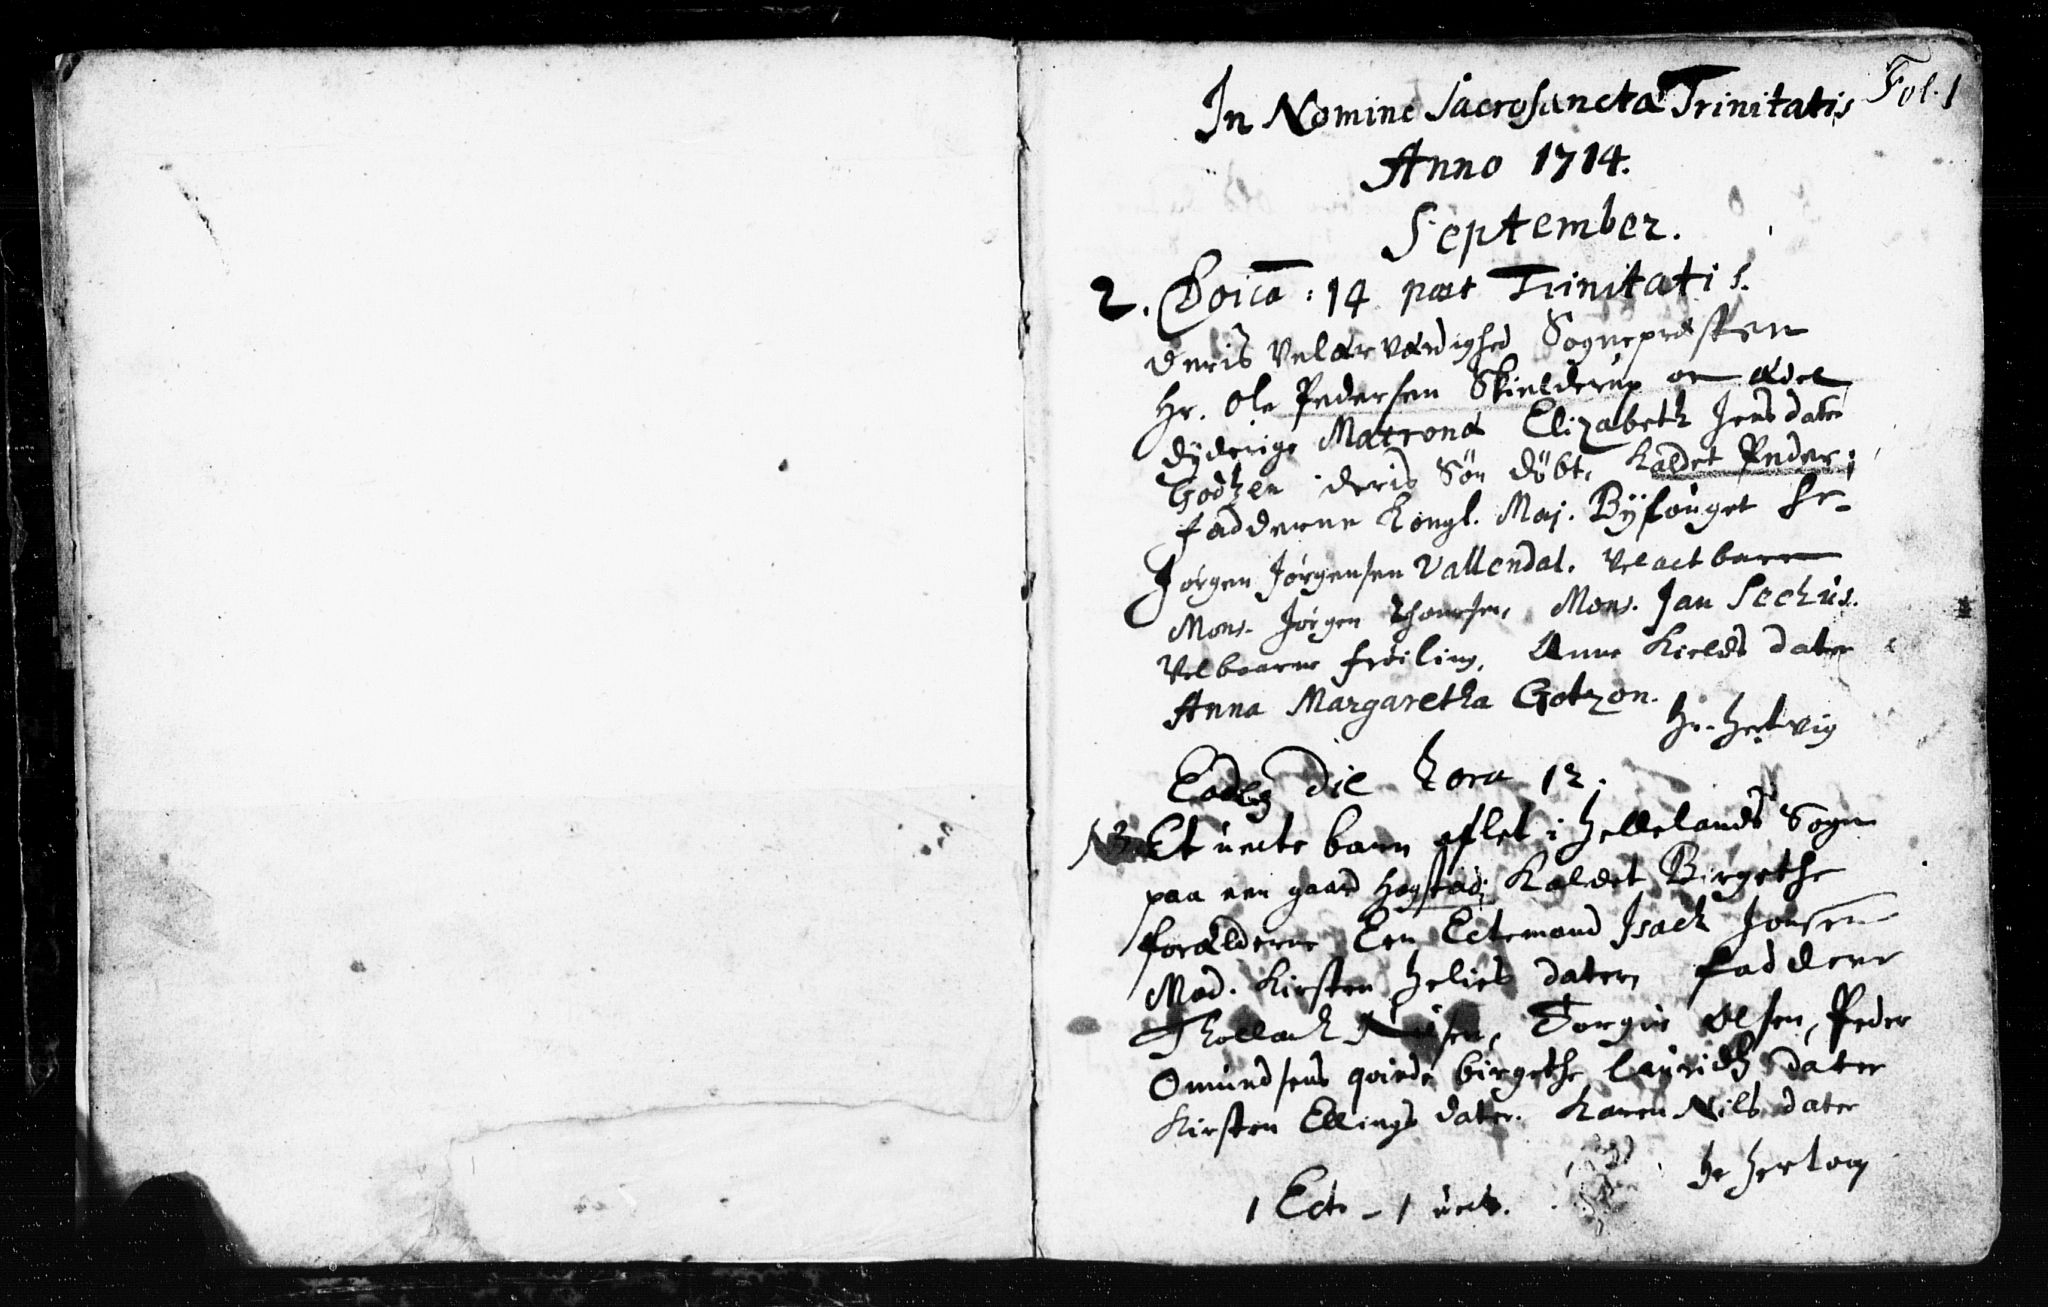 Fol. 1
In Nomine Sacrosanctæ Trinitatis
Anno 1714.
September.
2. Doica: 14 post Trinitatis.
Deris Velærværdighed Sognepræsten
Hr. Ole Pedersen Skielderup oc ædel
dyderige Matrona Elizabeth Jensdater
Godtzen deris Søn døbt, kaldet Peder;
fadderne Kongl. Maj. Bÿfouget Sr-
Jørgen Jørgensen Vallendal. Velactbarn
Mons. Jørgen Thomesen, Mons. Jan Sechus.
Velbaarne frøiling, Anne Kields dater
Anna Margaretha Gotzon.
Hr. Hertvig
Eadem Die hora 12.
N3. Et uecte barn aflet i Hellelands Sogn
paa een gaard Hogstad; Kaldet Birgethe
forælderne Een Ectemand Isach Jonsen
Mod. Kirsten Helies dater, faddere
Thollach Nilsen, Torgier Olsen, Peder
Omundsens qvinde birgethe Lauridtz dater
Kirsten Ellings dater. Karen Nils dater
Hr Hertvig
1 Ect - 1 uect.